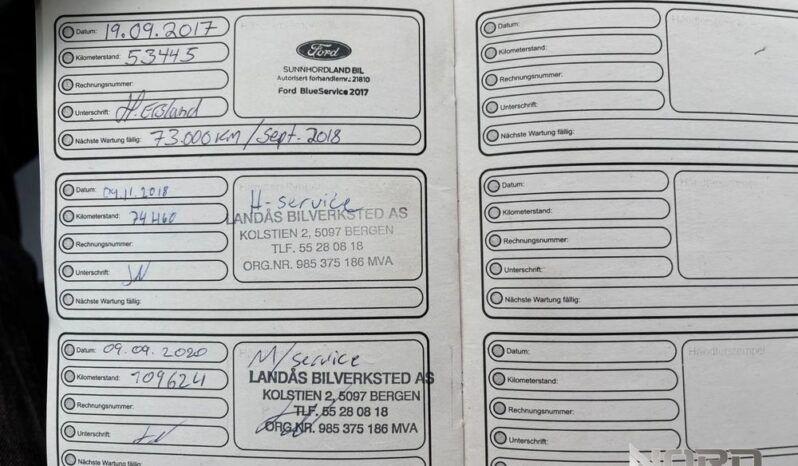 Datum: 19.09.2017
Kilometerstand: 53445
Rechnungsnummer:
Unterschrift:
Nächste Wartung fällig: 73.000 KM / Sept. 2018
Ford
SUNNHORDLAND BIL
Autorisert forhandlernr.: 21810
Ford BlueService 2017
Datum: 09.11.2018
Kilometerstand: 74460
Rechnungsnummer:
Unterschrift:
Nächste Wartung fällig:
H-service
LANDÅS BILVERKSTED AS
KOLSTIEN 2, 5097 BERGEN
TLF. 55 28 08 18
ORG.NR. 985 375 186 MVA
Datum: 09.09.2020
Kilometerstand: 109624
Rechnungsnummer:
Unterschrift:
Nächste Wartung fällig:
M/service
LANDÅS BILVERKSTED AS
KOLSTIEN 2, 5097 BERGEN
TLF. 55 28 08 18
ORG.NR. 985 375 186 MVA
Datum:
Kilometerstand:
Rechnungsnummer:
Unterschrift:
Nächste Wartung fällig:
Datum:
Kilometerstand:
Rechnungsnummer:
Unterschrift:
Nächste Wartung fällig:
Datum:
Kilometerstand:
Rechnungsnummer:
Unterschrift:
Händlerstempel
NORD